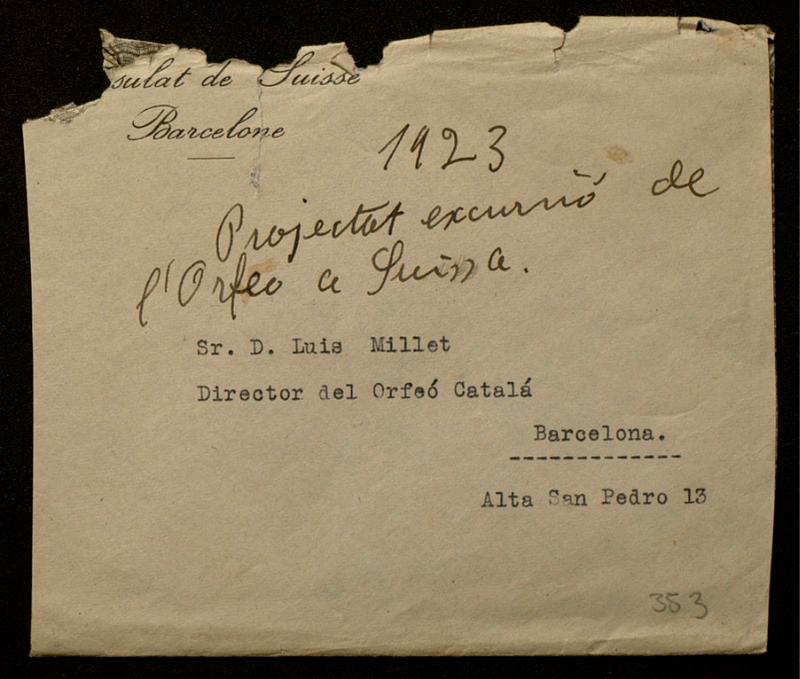 sulat de Suisse
Barcelone
1923
Projectat excursió de
l'Orfeo a Suissa.
Sr. D. Luis Millet
Director del Orfeó Catalá
Barcelona.
Alta San Pedro 13
353